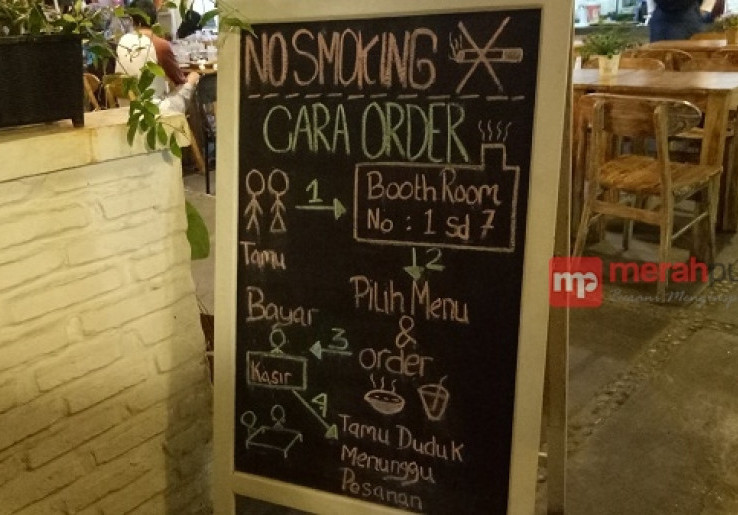 NO SMOKING
CARA ORDER
1
Booth Room
No : 1 sd 7
Tamu
2
Pilih Menu
&
order
Bayar
3
Kasir
4
Tamu Duduk
Menunggu
Pesanan
mp